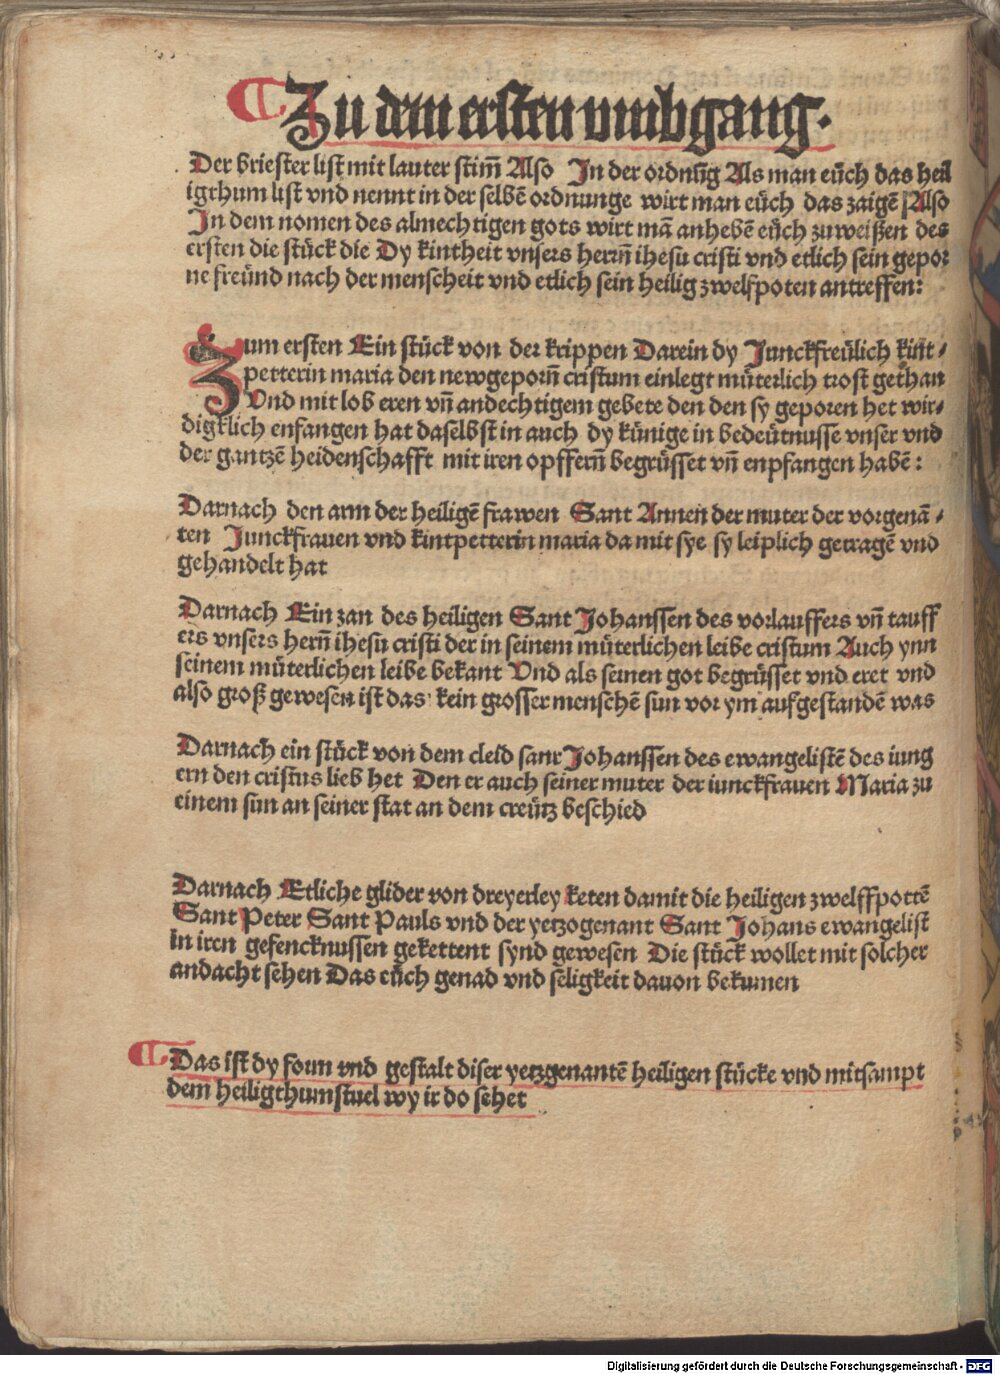 Zu dem ersten vmbgang.
Der briester list mit lauter stim̄ Also In der ordnūg Als man eüch das heil
igthum list vnd nennt in der selbē ordnunge wirt man eüch das zaigē Also
In dem nomen des almechtigen gots wirt mā anhebē eüch zu weißen des
ersten die stück die Dy kintheit vnsers herrn̄ ihesu cristi vnd etlich sein gepor
ne freünd nach der menscheit vnd etlich sein heilig zwelfpoten antreffen:
Zum ersten Ein stück von der krippen Darein dy Junckfreülich kint⸗
petterin maria den newgeporn̄ cristum einlegt müterlich trost gethan
Vnd mit lob eren vn̄ andechtigem gebete den den sy geporen het wir⸗
digklich enfangen hat daselbst in auch dy künige in bedeütnusse vnser vnd
der gantzē heidenschafft mit iren opffern̄ begrüsset vn̄ enpfangen habē:
Darnach den arm der heiligē frawen Sant Annen der muter der vorgenā⸗
ten Junckfrauen vnd kintpetterin maria da mit sye sy leiplich getragē vnd
gehandelt hat
Darnach Ein zan des heiligen Sant Johanssen des vorlauffers vn̄ tauff
ers vnsers hern̄ ihesu cristi der in seinem müterlichen leibe cristum Auch ynn
seinem müterlichen leibe bekant Vnd als seinen got begrüsset vnd eret vnd
also groß gewesen ist das kein grosser menschē sun vor ym aufgestandē was
Darnach ein stück von dem cleid sant Johanssen des ewangelistē des iung
ern den cristus lieb het Den er auch seiner muter der iunckfrauen Maria zu
einem sun an seiner stat an dem creütz beschied
Darnach Etliche glider von dreyerley keten damit die heiligen zwelffpottē
Sant Peter Sant Pauls vnd der yetzogenant Sant Johans ewangelist
in iren gefencknussen gekettent synd gewesen Die stück wollet mit solcher
andacht sehen Das eüch genad vnd seligkeit dauon bekumen
Das ist dy form vnd gestalt diser yetzgenantē heiligen stücke vnd mitsampt
dem heiligthumstuel wy ir do sehet
Digitalisierung gefördert durch die Deutsche Forschungsgemeinschaft - DFG